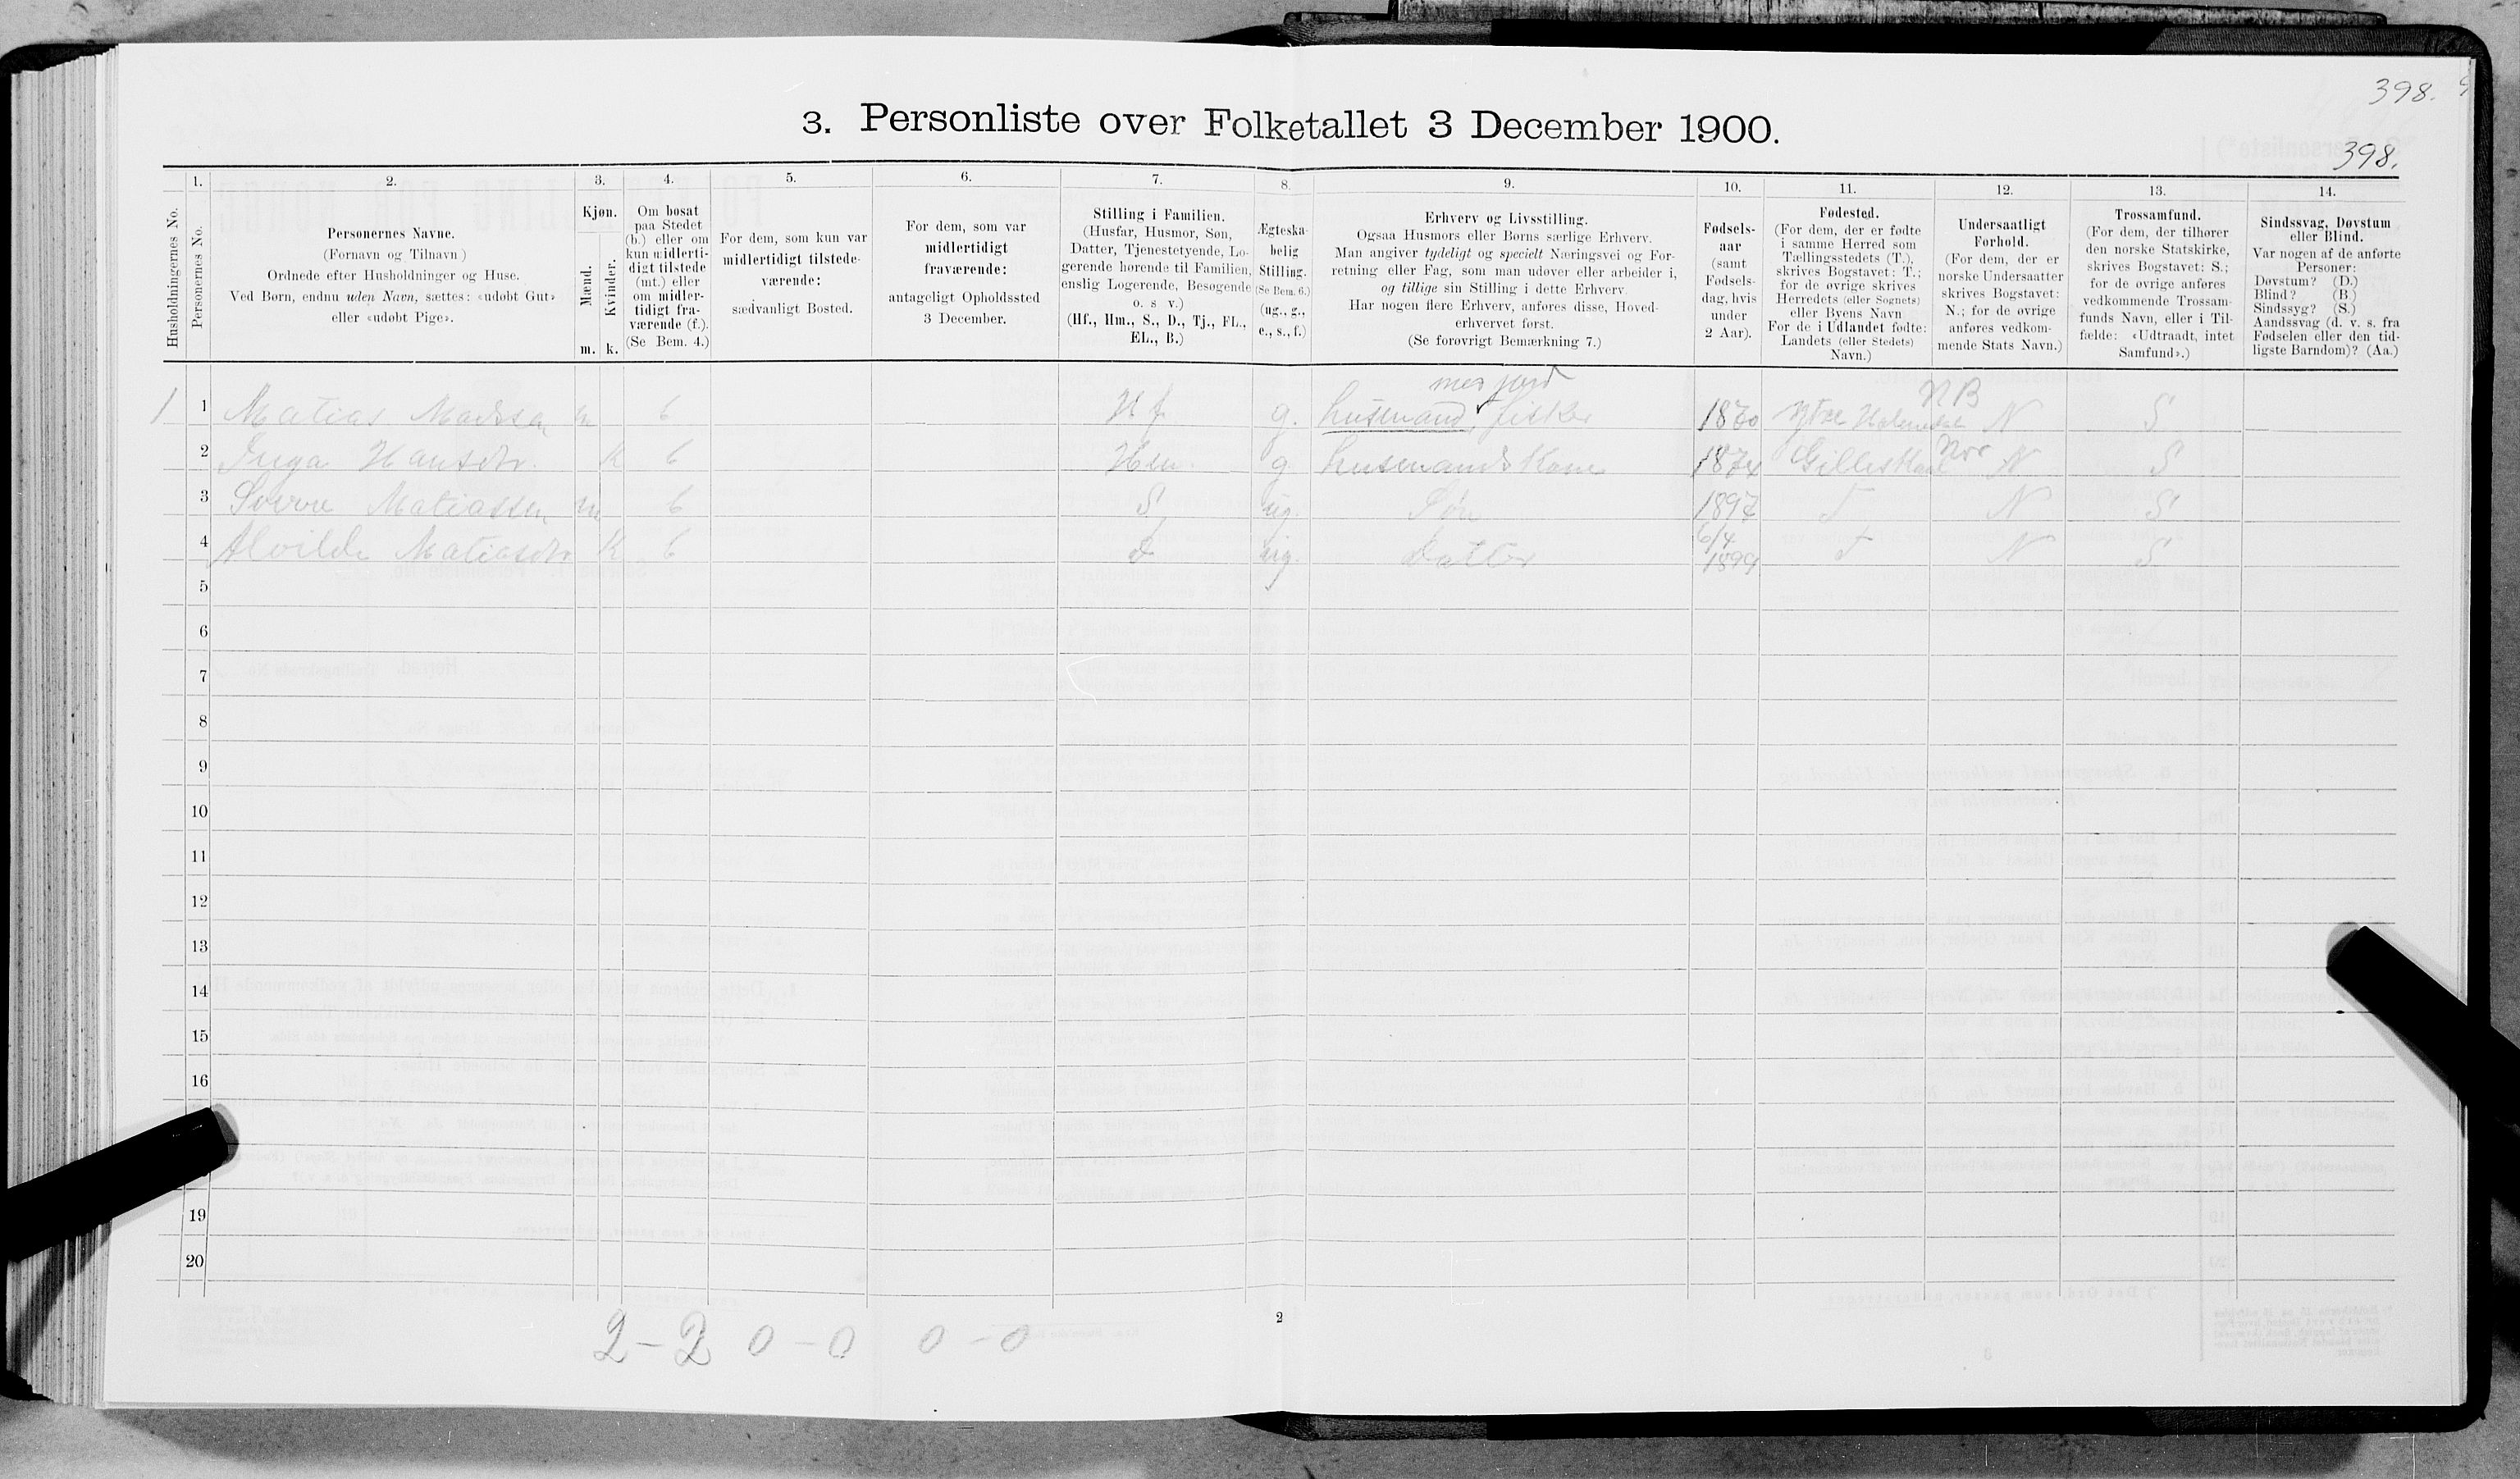 398.
3. Personliste over Folketallet 3 December 1900.
398.
Husholdningernes No.
1.
Personernes No.
2.
Personernes Navne.
(Fornavn og Tilnavn)
Ordnede efter Husholdninger og Huse.
Ved Børn, endnu uden Navn, sættes: «udøbt Gut»
eller «udøbt Pige».
3.
Kjøn.
Mænd.
Kvinder.
m. k.
4.
Om bosat
paa Stedet
(b.) eller om
kun midlerti-
digt tilstede
(mt.) eller
om midler-
tidigt fra-
værende (f.).
(Se Bem. 4.)
5.
For dem, som kun var
midlertidigt tilstede-
værende:
sædvanligt Bosted.
6.
For dem, som var
midlertidigt
fraværende:
antageligt Opholdssted
3 December.
7.
Stilling i Familien.
(Husfar, Husmor, Søn,
Datter, Tjenestetyende, Lo-
gerende hørende til Familien,
enslig Logerende, Besøgende
o. s v.)
(Hf., Hm., S., D., Tj., FL.,
EL., B.)
8.
Ægteska-
belig
Stilling.
(Se Bem. 6.)
(ug., g.,
e., s., f.)
9.
Erhverv og Livsstilling.
Ogsaa Husmors eller Børns særlige Erhverv.
Man angiver tydeligt og specielt Næringsvei og For-
retning eller Fag, som man udøver eller arbeider i,
og tillige sin Stilling i dette Erhverv.
Har nogen flere Erhverv, anføres disse, Hoved-
erhvervet først.
(Se forøvrigt Bemærkning 7.)
10.
Fødsels-
aar
(samt
Fødsels-
dag, hvis
under
2 Aar).
11.
Fødested.
(For dem, der er fødte
i samme Herred som
Tællingsstedets (T.),
skrives Bogstavet: T.;
for de øvrige skrives
Herredets (eller Sognets)
eller Byens Navn
For de i Udlandet fødte:
Landets (eller Stedets)
Navn.)
12.
Undersaatligt
Forhold.
(For dem, der er
norske Undersaatter
skrives Bogstavet:
N.; for de øvrige
anføres vedkom-
mende Stats Navn.)
13.
Trossamfund.
(For dem, der tilhører
den norske Statskirke,
skrives Bogstavet: S.;
for de øvrige anføres
vedkommende Trossam-
funds Navn, eller i Til-
fælde: «Udtraadt, intet
Samfund».)
14.
Sindssvag, Døvstum
eller Blind.
Var nogen af de anførte
Personer:
Døvstum? (D.)
Blind? (B.)
Sindssyg? (S.)
Aandssvag (d. v. s. fra
Fødselen eller den tid-
ligste Barndom)? (Aa.)
med jord NB
1 1 Matias Madssen m b Hf g. husmand, fisker 1870 N S
2 Inga Hansdtr. k b Hm. g husmands Kone 1874 Gilleskaal N S
3 Sverre Matiassen m b S ug. Søn 1897 T N S
4 Alvilde Matiasdtr k b D ug. Datter 6/4 1899 T N S
5
6
7
8
9
10
11
12
13
14
15
16
19
20
2 - 2 0 - 0 0 - 0
2